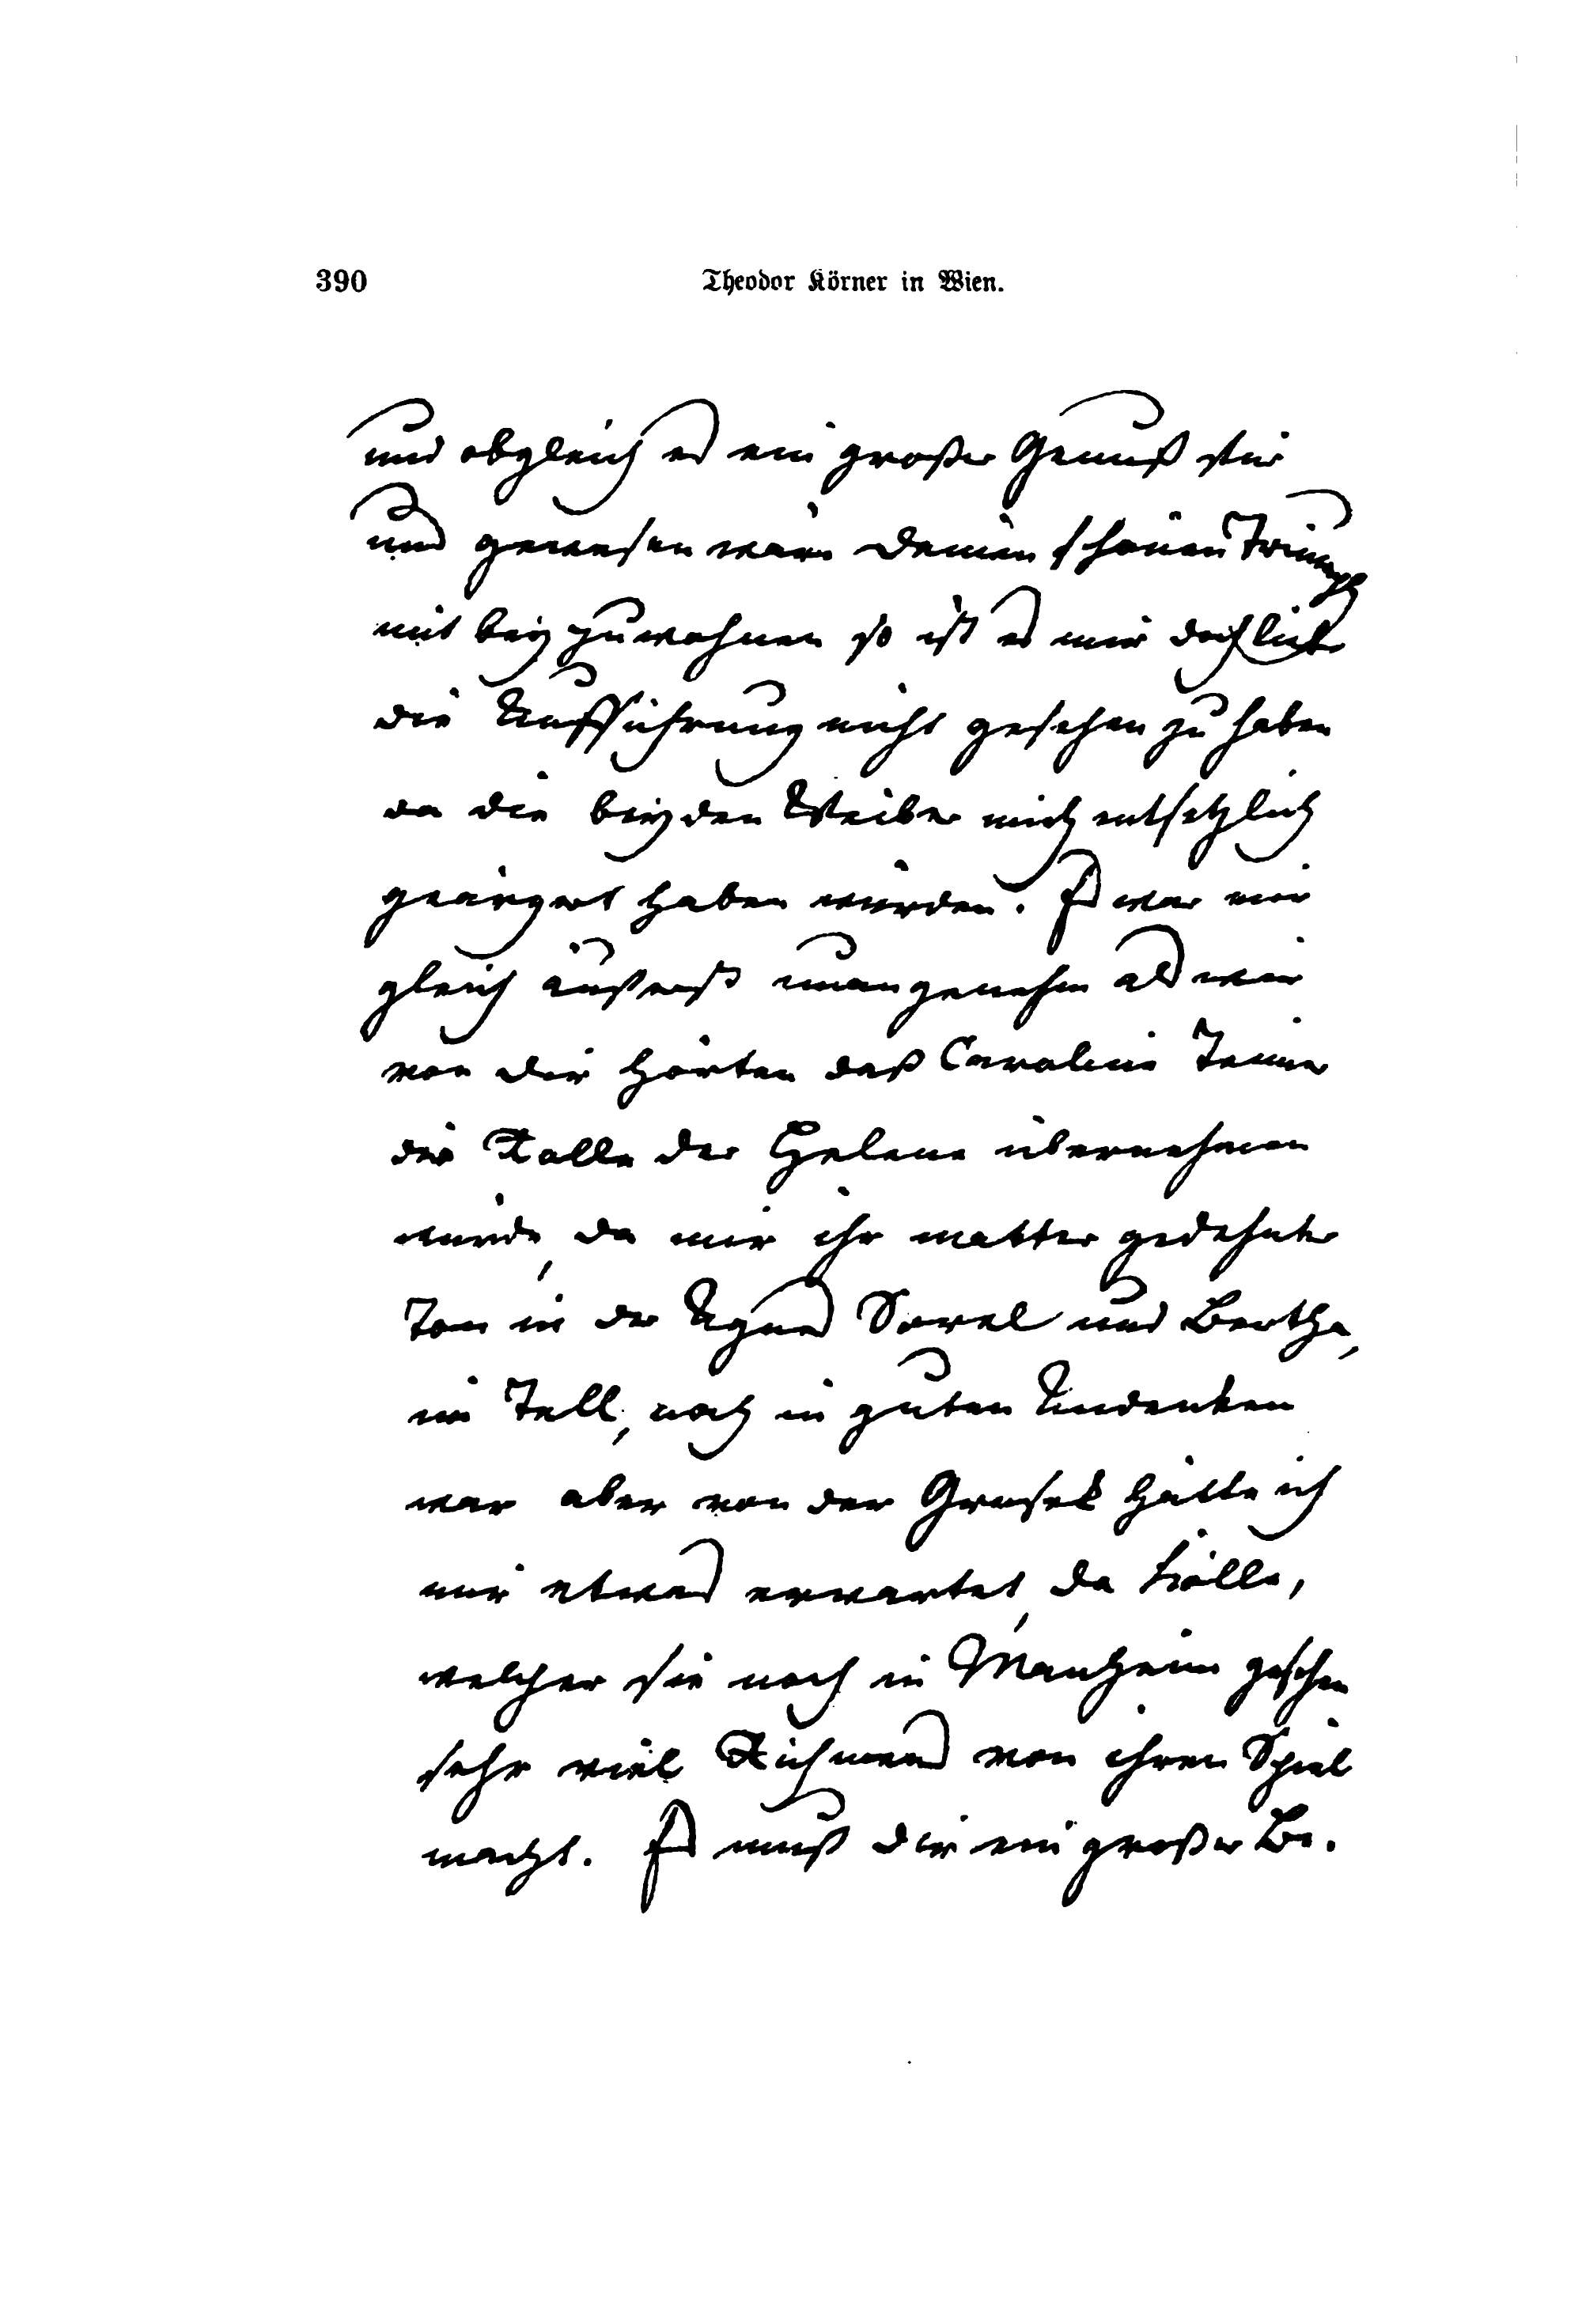 390 Theodor Körner in Wien.
und obgleich es ein großer Genuß für
uns gewesen wäre deinen schönen Triumph
mit bey zu wohnen so ist es mir doch lieb
die Aufführung nicht gesehen zu haben
da die beyden Weiber mich entsetzlich
geärgert haben würden. Es war mir
gleich äußerst unangenehm als wir
von dir hörten daß Caroline
die Rolle der Helene übernehmen
würde, da mir ihr matter gedehnter
Ton in der Agnes Sorel und Bertha,
im Tell, noch in guten Andenken
war aber von der hätte ich
mir etwas erwartet, da
welcher sie noch in Manheim gesehen
sehr viel Rühmens von ihren Spiel
macht. Es muß dir ein großer Be.